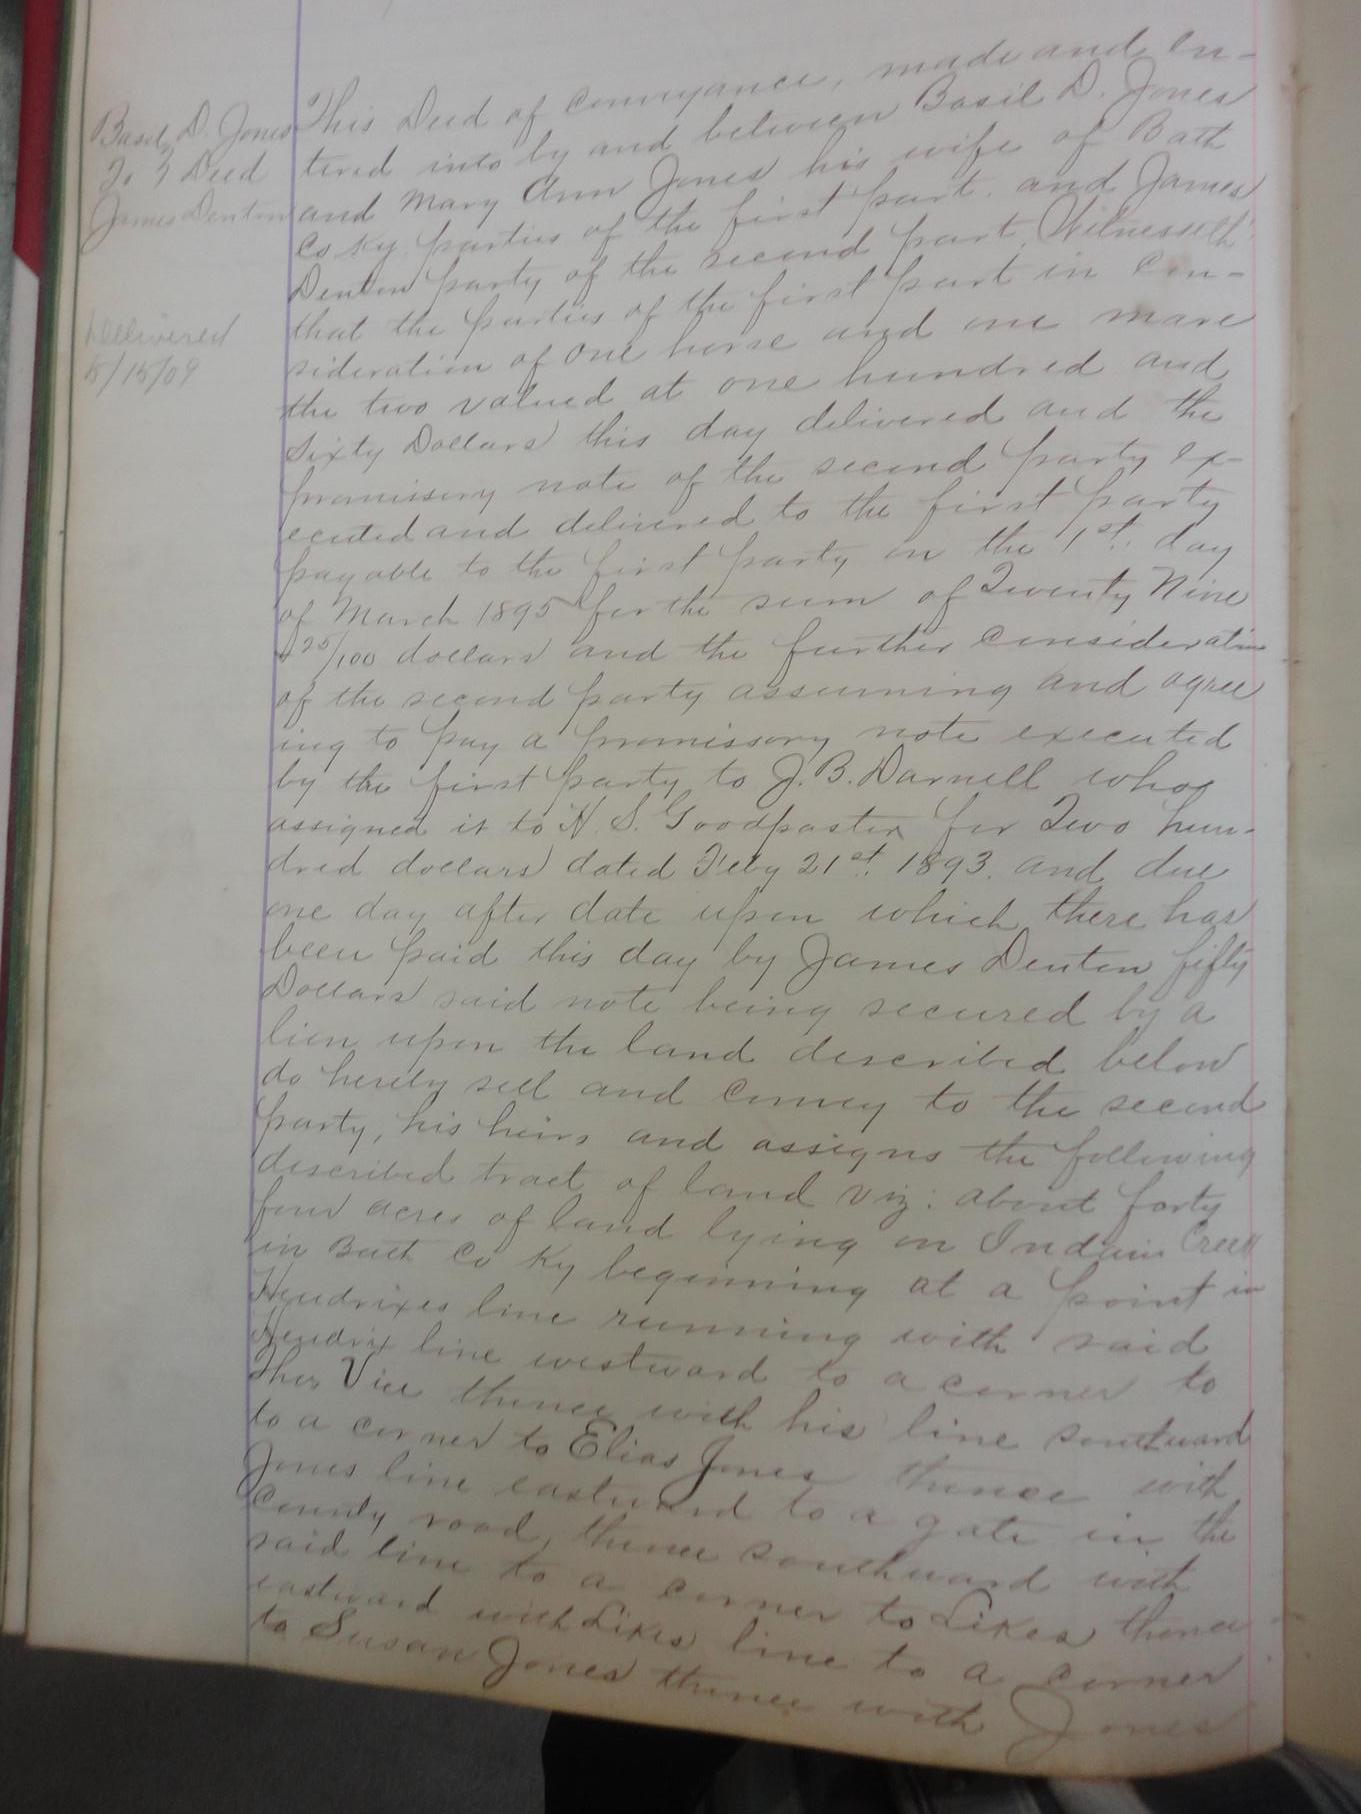 Basil D. Jones
To } Deed
James Denton
Delivered
5/15/09
This Deed of Conveyance, made and en-
tered into by and between Basil D. Jones
and Mary Ann Jones his wife of Bath
Co Ky. parties of the first part. and James
Denton party of the second part, Witnesseth:
that the parties of the first part in Con-
sideration of one horse and one mare
the two valued at one hundred and
Sixty Dollars this day delivered and the
promissory note of the second party ex-
ecuted and delivered to the first party
payable to the first party on the 1st. day
of March 1895 for the sum of Twenty Nine
25/100 dollars and the further consideration
of the second party assuming and agree
ing to pay a promissory note executed
by the first party to J. B. Darnell who
assigned it to H. S. Goodpaster for Two hun-
dred dollars dated Feby 21st. 1893. and due
one day after date upon which there has
been paid this day by James Denton fifty
Dollars said note being secured by a
lien upon the land described below
do hereby sell and Convey to the second
party, his heirs and assigns the following
described tract of land viz: about forty
four acres of land lying on Indain Creek
in Bath Co Ky beginning at a point in
Hendrixes line running with said
Hendrix line westward to a corner to
Thos Vice thence with his line southward
to a corner to Elias Jones thence with
Jones line eastward to a gate in the
County road, thence southward with
said line to a corner to Likes thence
eastward with Likes line to a corner
to Susan Jones thence with Jones